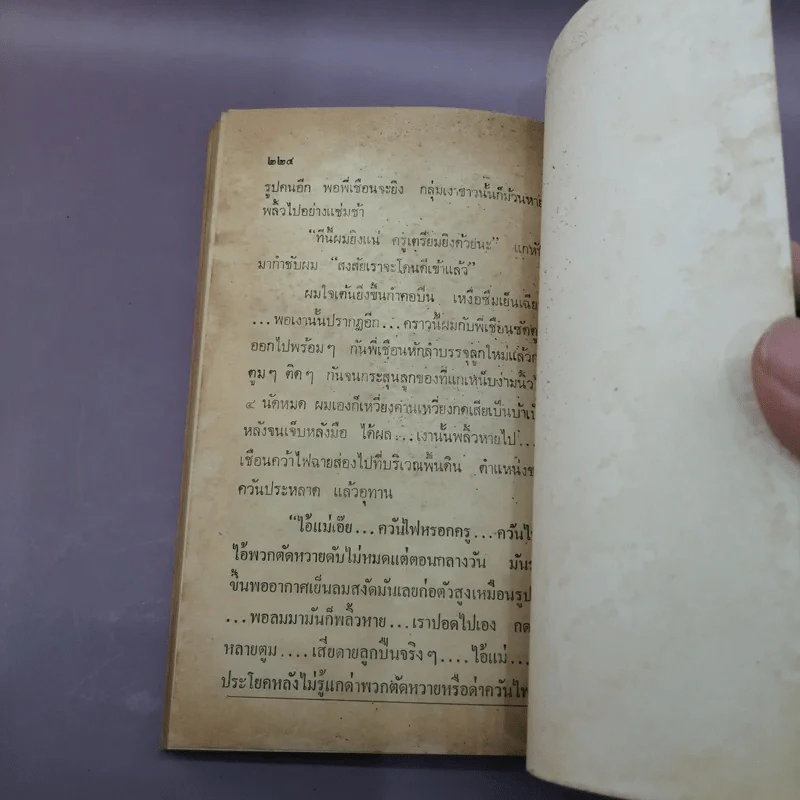 ๒๒๔
รูปคนอีก พอพี่เชือนจะยิง กลุ่มเงาขาวนั้นก็ม้วนหาย
พลิ้วไปอย่างแช่มช้า
“ทีนี้ผมยิงแน่ ครูเตรียมยิงด้วยนะ” แกหัน
มากำชับผม “สงสัยเราจะโดนดีเข้าแล้ว”
ผมใจเต้นยิ่งขึ้นกำคอปืน เหงื่อซึมเย็นเฉีย
...พอเงานั้นปรากฏอีก...คราวนี้ผมกับพี่เชือนซัดตู
ออกไปพร้อมๆ กันพี่เชือนหักลำบรรจุลูกใหม่แล้วก
ตูมๆ ติดๆ กันจนกระสุนลูกซองที่แกเหน็บง่ามนิ้วไ
๔ นัดหมด ผมเองก็เหวี่ยงคานเหวี่ยงกดเสียเป็นบ้าเป็
หลังจนเจ็บหลังมือ ได้ผล...เงานั้นพลิ้วหายไป...
เชือนคว้าไฟฉายส่องไปที่บริเวณพื้นดิน ตำแหน่งข
ควันประหลาด แล้วอุทาน
“ไอ้แม่เอ๊ย...ควันไฟหรอกครู...ควันไ
ไอ้พวกตัดหวายดับไม่หมดแต่ตอนกลางวัน มัน
ขึ้นพออากาศเย็นลมสงัดมันเลยก่อตัวสูงเหมือนรูป
...พอลมมามันก็พลิ้วหาย...เราปอดไปเอง กด
หลายตูม....เสียดายลูกปืนจริงๆ....ไอ้แม่...
ประโยคหลังไม่รู้แกด่าพวกตัดหวายหรือด่าควันไฟ